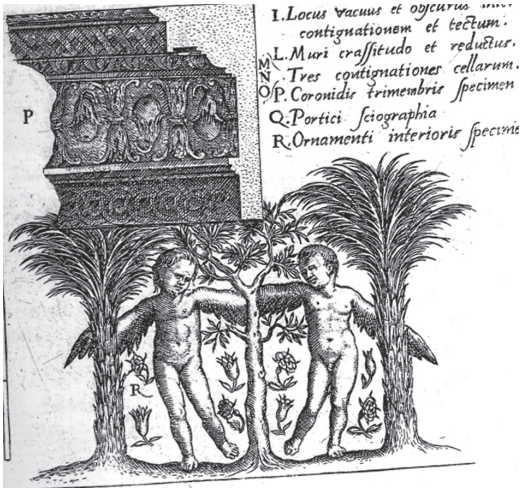 I. Locus vacuus et obscurus inter
contignationem et tectum.
L. Muri crassitudo et reductus.
M
N
O
Tres contignationes cellarum.
P. Coronidis trimembris specimen
Q. Portici sciographia
R. Ornamenti interioris
P
R